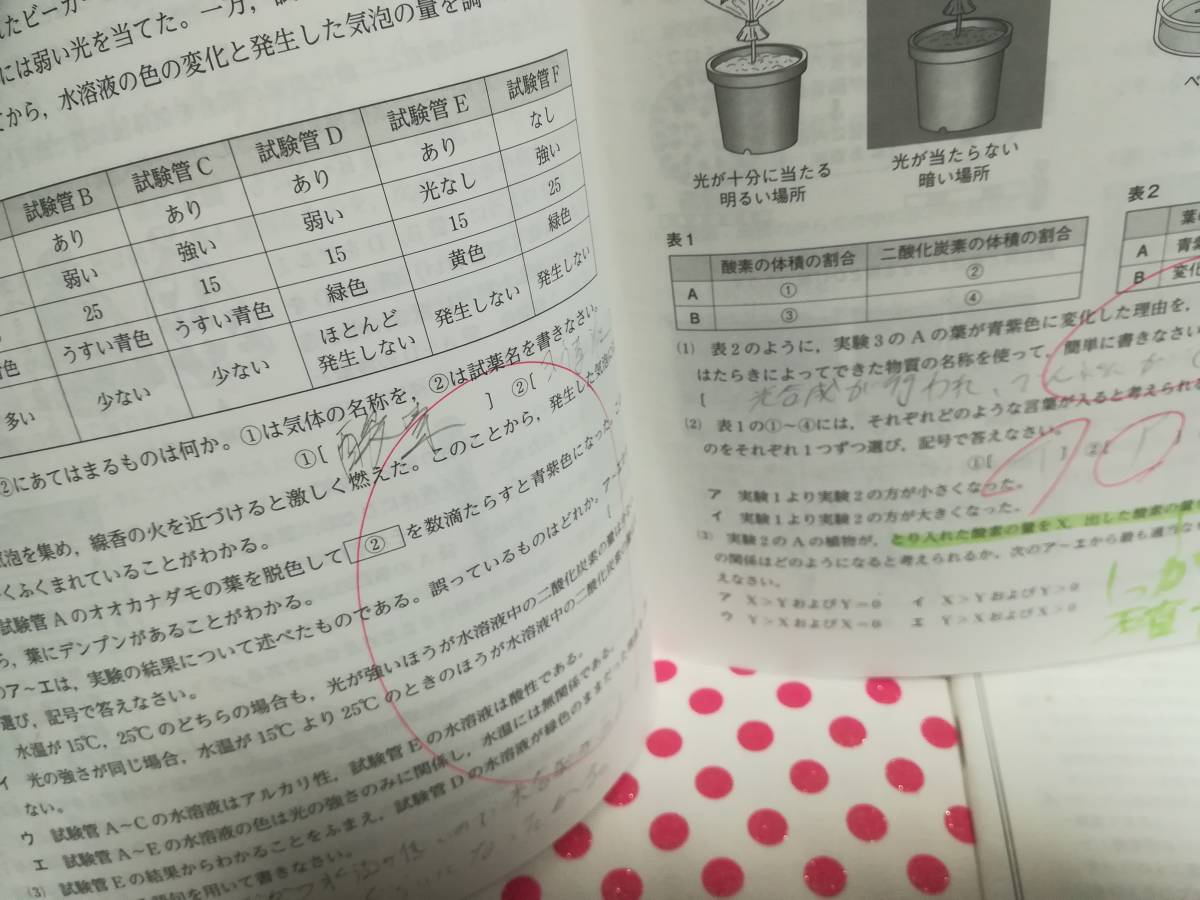 れたビーカー
には弱い光を当てた。一方,
てから,水溶液の色の変化と発生した気泡の量を調
試験管B 試験管C 試験管D 試験管E 試験管F
あり あり あり あり なし
弱い 強い 弱い 光なし 強い
25 15 15 15 25
うすい青色 うすい青色 緑色 黄色 緑色
多い 少ない 少ない ほとんど発生しない 発生しない 発生しない
②にあてはまるものは何か。①は気体の名称を,②は試薬名を書きなさい。
①[ 酸素 ] ②[
気泡を集め,線香の火を近づけると激しく燃えた。このことから,発生した気泡
くふくまれていることがわかる。
試験管Aのオオカナダモの葉を脱色して ② を数滴たらすと青紫色になった。こ
ら,葉にデンプンがあることがわかる。
のア~エは,実験の結果について述べたものである。誤っているものはどれか。ア~
選び,記号で答えなさい。 [
水温が15℃,25℃のどちらの場合も,光が強いほうが水溶液中の二酸化炭素の量は
イ 光の強さが同じ場合,水温が15℃より25℃のときのほうが水溶液中の二酸化炭素
ない。
ウ 試験管A~Cの水溶液はアルカリ性,試験管Eの水溶液は酸性である。
エ 試験管A~Eの水溶液の色は光の強さのみに関係し,水温には無関係である。
(3) 試験管Eの結果からわかることをふまえ,試験管Dの水溶液が緑色のままだった理由
語句を用いて書きなさい。
光が十分に当たる
明るい場所
光が当たらない
暗い場所
ペ
表1
酸素の体積の割合 二酸化炭素の体積の割合
A ① ②
B ③ ④
表2
葉の
A 青紫
B 変化
(1) 表2のように,実験3のAの葉が青紫色に変化した理由を,
はたらきによってできた物質の名称を使って,簡単に書きなさい
[ 光合成が行われ、でんぷんが
(2) 表1の①~④には,それぞれどのような言葉が入ると考えられる
のをそれぞれ1つずつ選び,記号で答えなさい。
①[ ] ②[ ]
ア 実験1より実験2の方が小さくなった。
イ 実験1より実験2の方が大きくなった。
(3) 実験2のAの植物が,とり入れた酸素の量をX,出した酸素の量
の関係はどのようになると考えられるか,次のア~エから最も適当な
えなさい。
ア X>YおよびY=0 イ X>YおよびY>0
ウ Y>XおよびX=0 エ Y>XおよびX>0
しっか
確